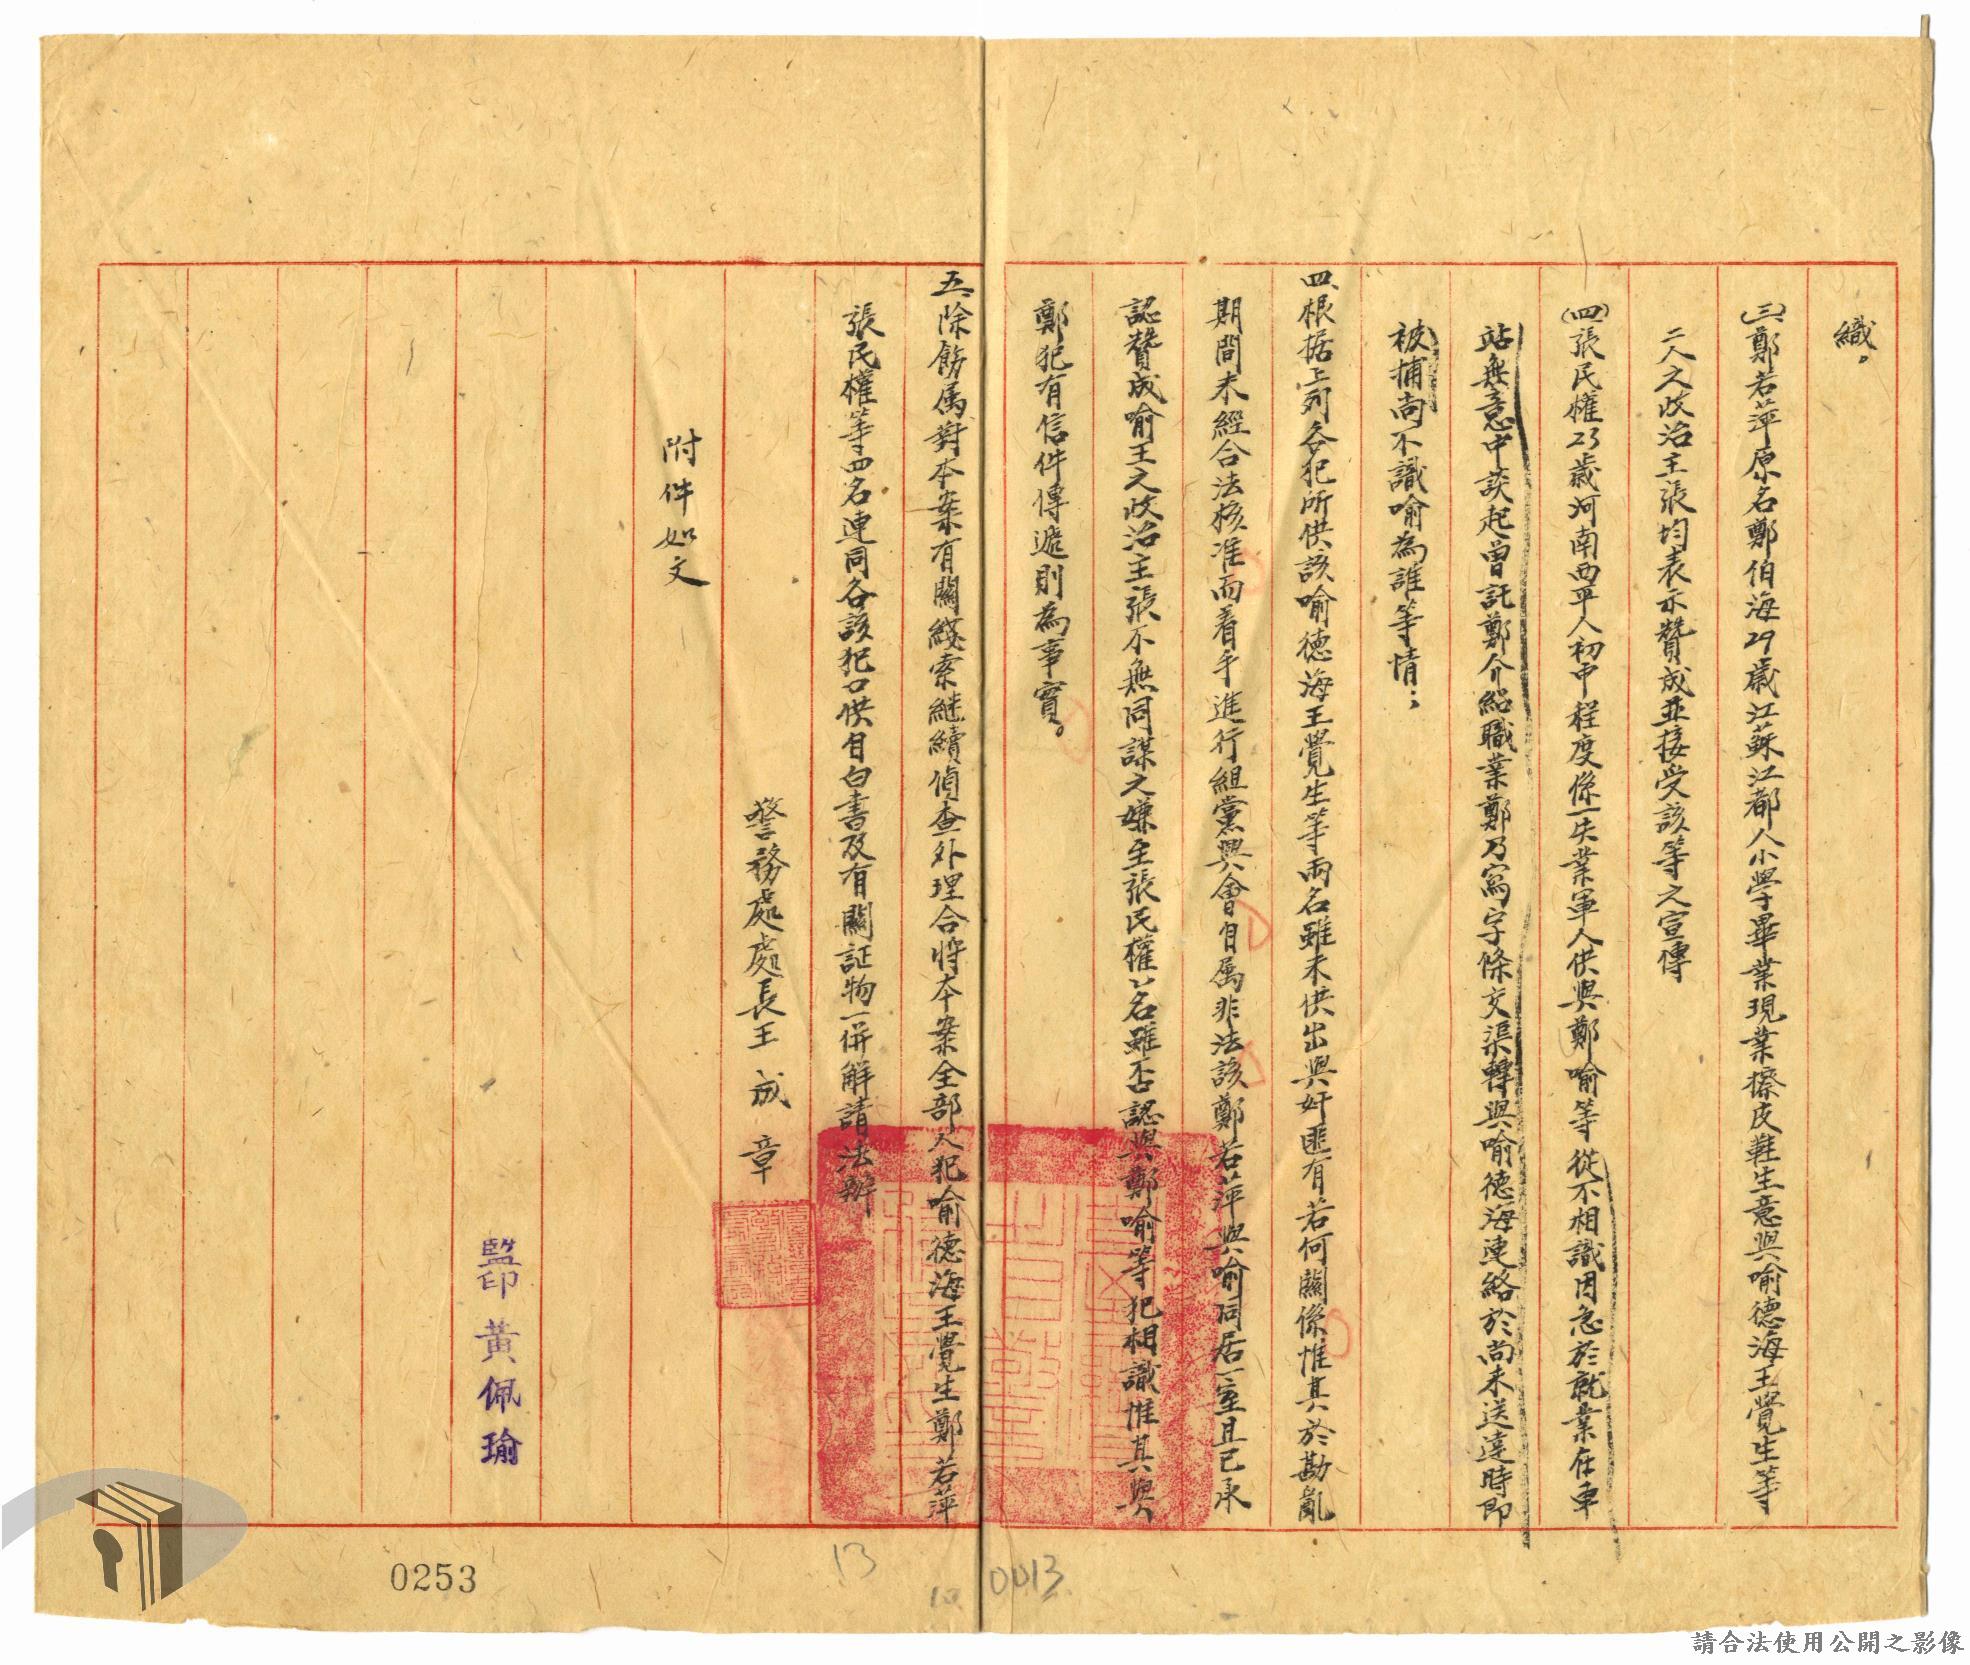 織。
(三)鄭若萍原名鄭伯海29歲江蘇江都人小學畢業現業擦皮鞋生意與喻德海王覺生等
二人之政治主張均表示贊成並接受該等之宣傳
(四)張民權23歲河南西平人初中程度係一失業軍人供與鄭喻等從不相識因急於就業在車
站無意中談起曾託鄭介紹職業鄭乃寫字條交渠轉與喻德海連絡於尚未送達時即
被捕尚不識喻為誰等情；
四、根据上列各犯所供該喻德海王覺生等兩名雖未供出與奸匪有若何關係惟其於勘亂
期間未經合法核准而着手進行組黨興會自属非法該鄭若萍與喻同居一室且已承
認贊成喻王之政治主張不無同謀之嫌至張民權一名雖否認與鄭喻等犯相識惟其與
鄭犯有信件傳遞則為事實。
五、除飭属對本案有關綫索継續偵查外理合將本案全部人犯喻德海王覺生鄭若萍
張民權等四名連同各該犯口供自白書及有關証物一併解請法辦
警務處處長王成章
附件如文
監印黃佩瑜
0253
13
0013
請合法使用公開之影像